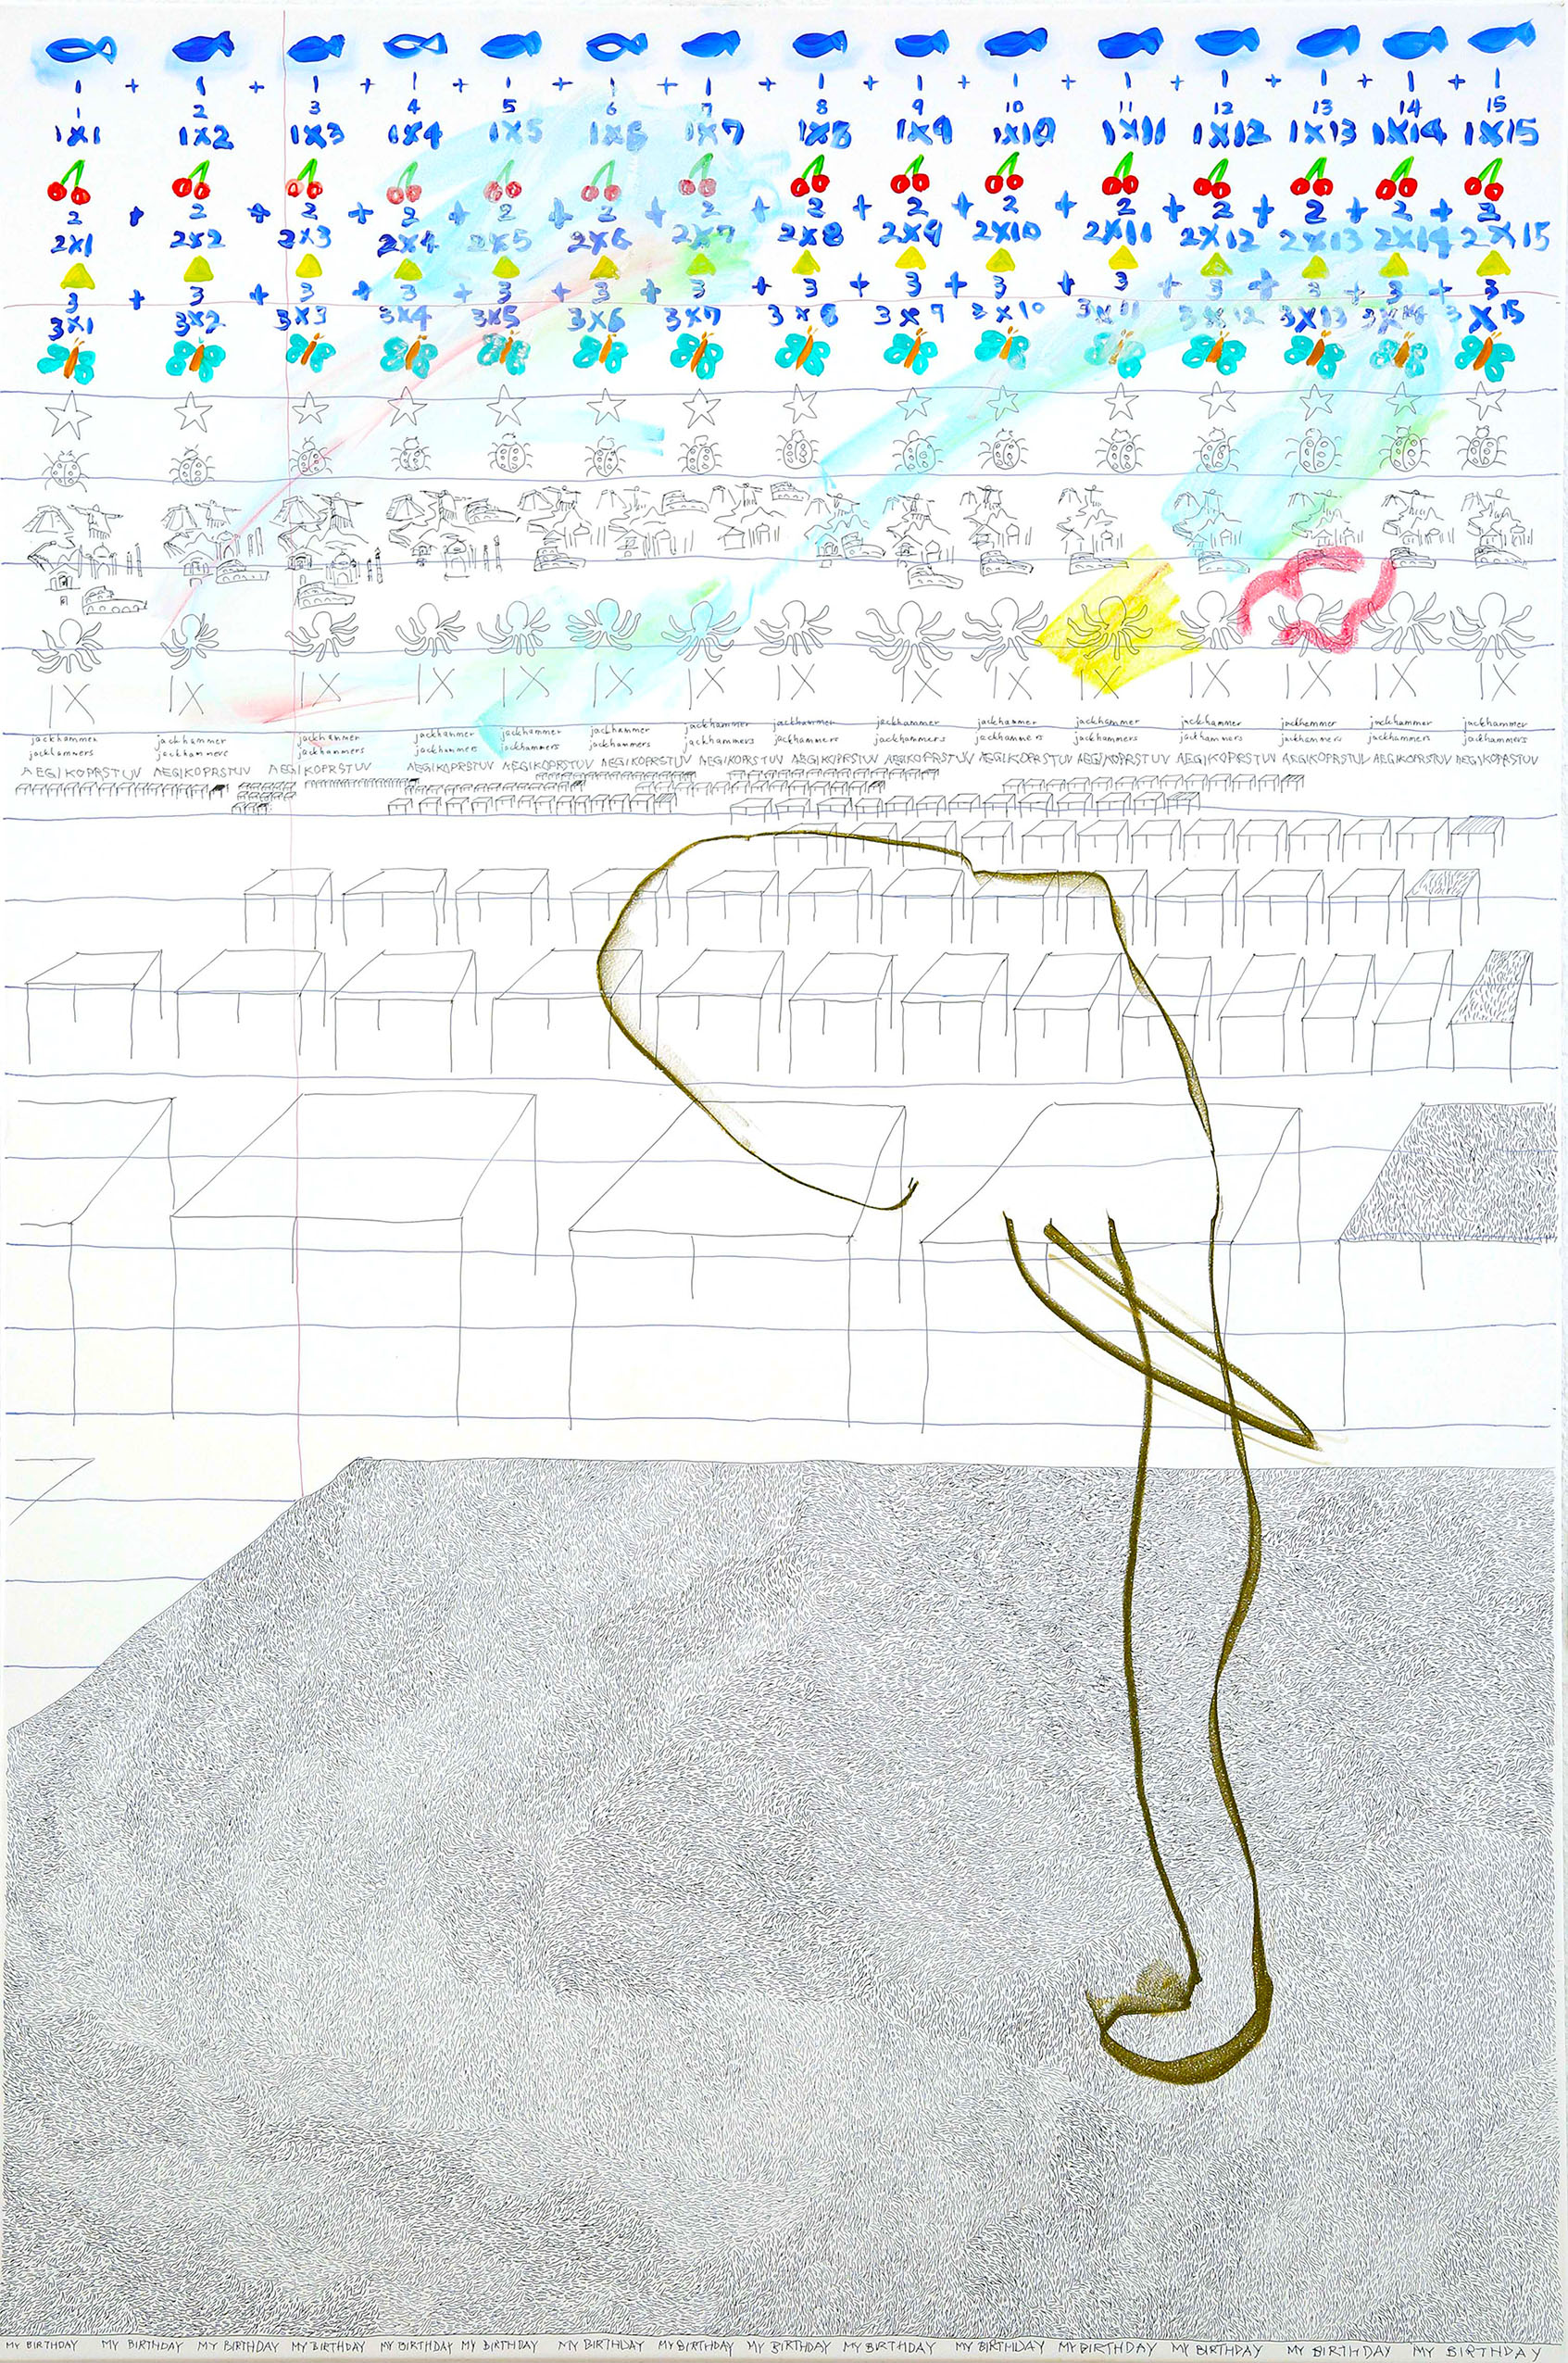 1 + 1 + 1 + 1 + 1 + 1 + 1 + 1 + 1 + 1 + 1 + 1 + 1 + 1 + 1
1 2 3 4 5 6 7 8 9 10 11 12 13 14 15
1X1 1X2 1X3 1X4 1X5 1X6 1X7 1X8 1X9 1X10 1X11 1X12 1X13 1X14 1X15
2 + 2 + 2 + 2 + 2 + 2 + 2 + 2 + 2 + 2 + 2 + 2 + 2 + 2 + 2
2X1 2X2 2X3 2X4 2X5 2X6 2X7 2X8 2X9 2X10 2X11 2X12 2X13 2X14 2X15
3 + 3 + 3 + 3 + 3 + 3 + 3 + 3 + 3 + 3 + 3 + 3 + 3 + 3 + 3
3X1 3X2 3X3 3X4 3X5 3X6 3X7 3X8 3X9 3X10 3X11 3X12 3X13 3X14 3X15
IX IX IX IX IX IX IX IX IX IX IX IX IX IX IX
jackhammer jackhammer jackhammer jackhammer jackhammer jackhammer jackhammer jackhammer jackhammer jackhammer jackhammer jackhammer jackhammer jackhammer jackhammer
jackhammers jackhammers jackhammers jackhammers jackhammers jackhammers jackhammers jackhammers jackhammers jackhammers jackhammers jackhammers jackhammers jackhammers jackhammers
AEGIKOPRSTUV AEGIKOPRSTUV AEGIKOPRSTUV AEGIKOPRSTUV AEGIKOPRSTUV AEGIKOPRSTUV AEGIKOPRSTUV AEGIKOPRSTUV AEGIKOPRSTUV AEGIKOPRSTUV AEGIKOPRSTUV AEGIKOPRSTUV AEGIKOPRSTUV AEGIKOPRSTUV AEGIKOPRSTUV
MY BIRTHDAY MY BIRTHDAY MY BIRTHDAY MY BIRTHDAY MY BIRTHDAY MY BIRTHDAY MY BIRTHDAY MY BIRTHDAY MY BIRTHDAY MY BIRTHDAY MY BIRTHDAY MY BIRTHDAY MY BIRTHDAY MY BIRTHDAY MY BIRTHDAY